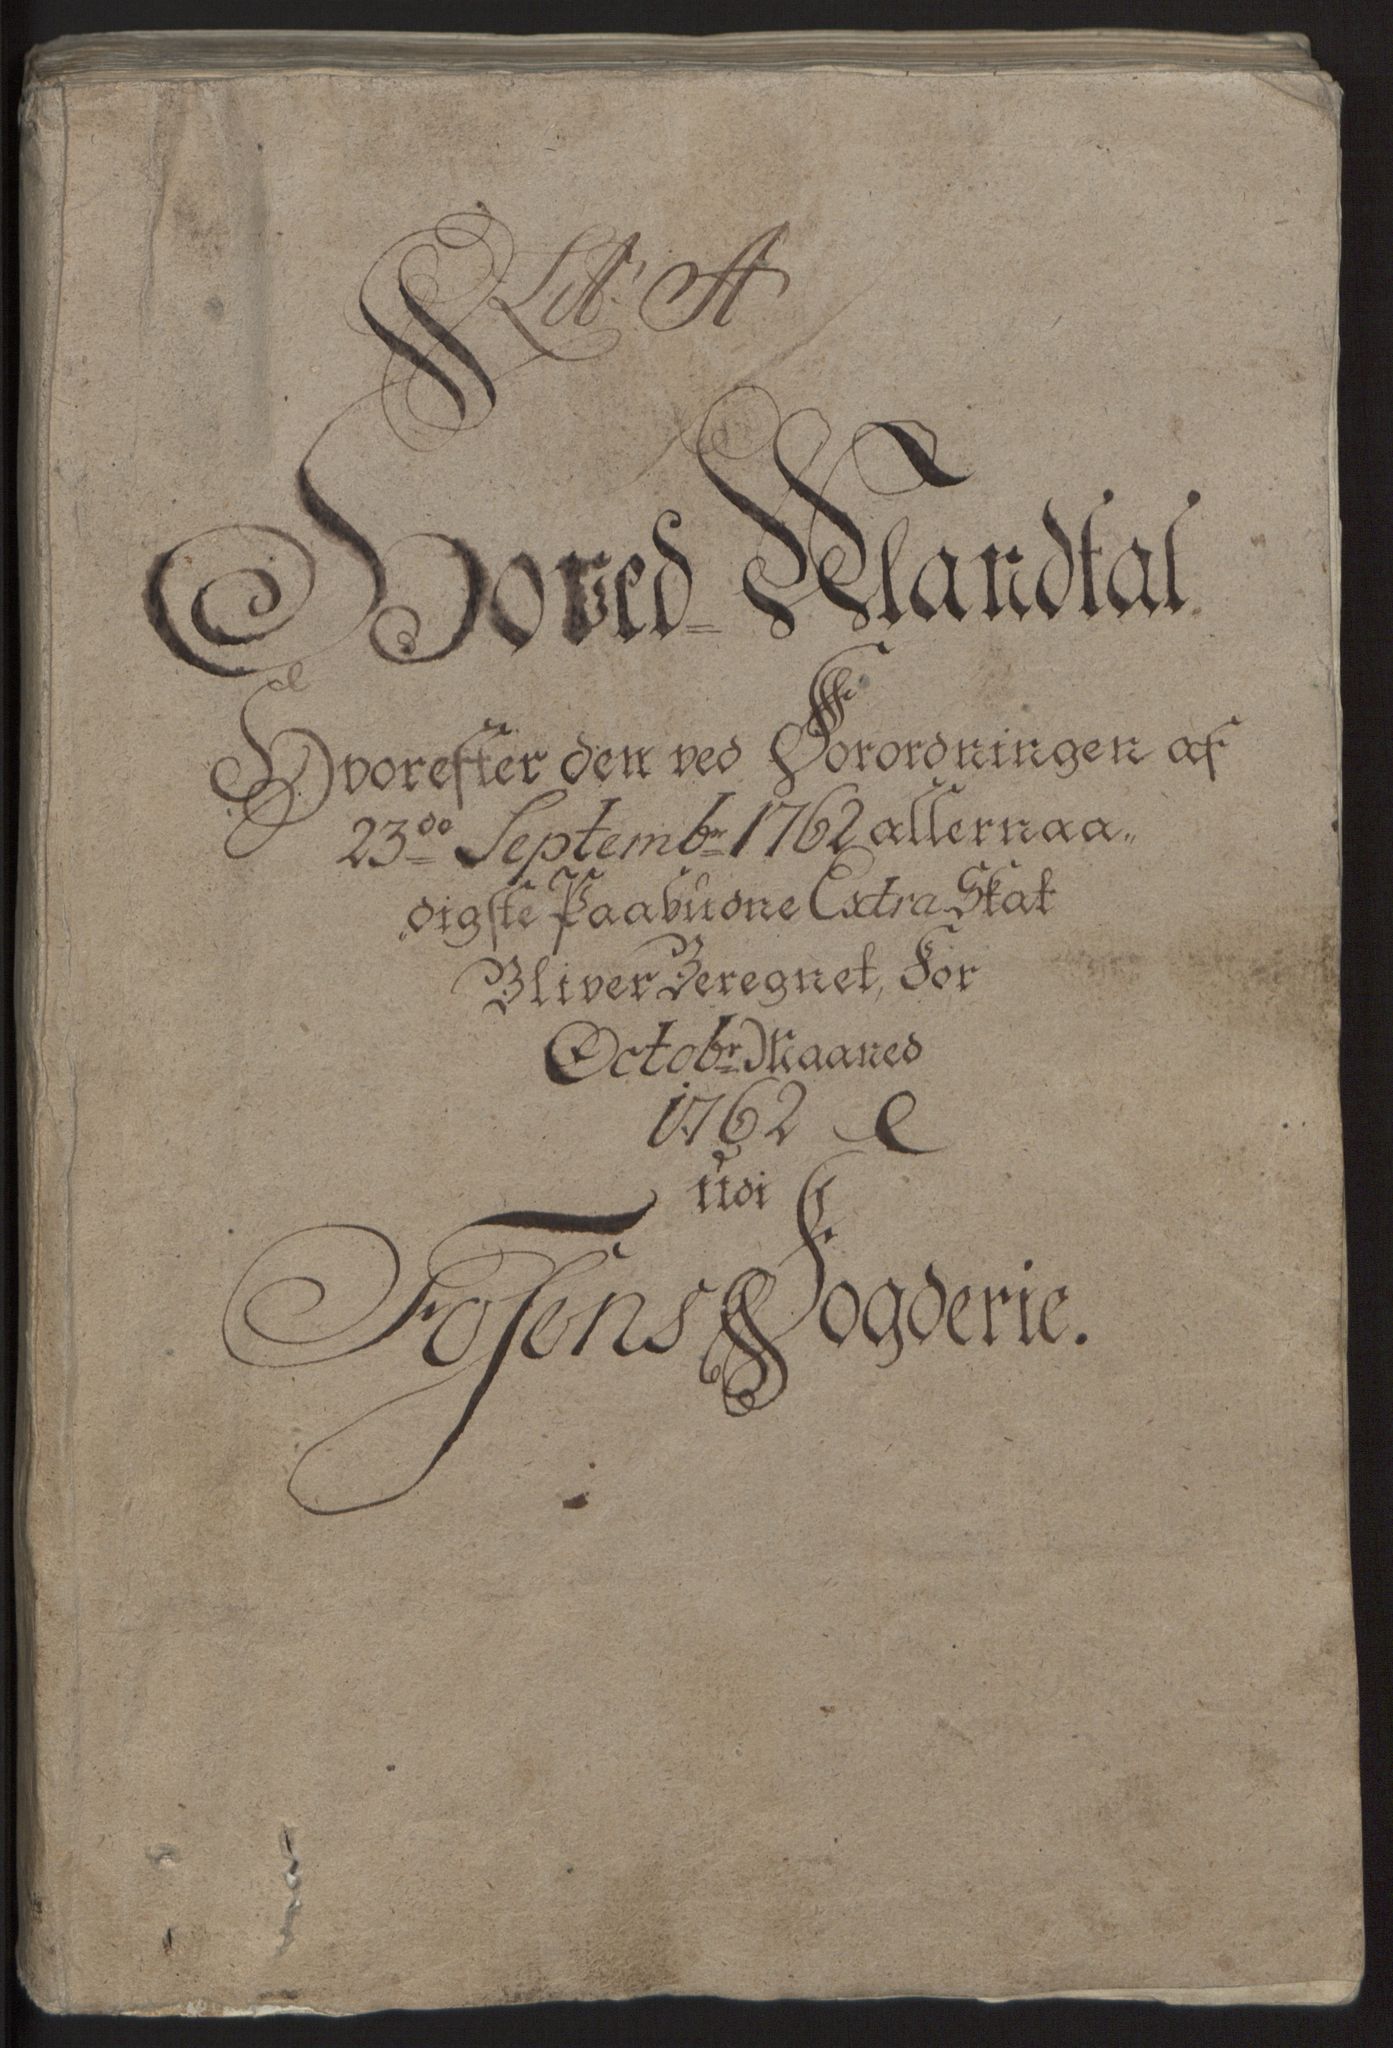 Lit: A
Hoved-Mandtal
Hvorefter den ved Forordningen af
23de Septembr 1762 allernaa-
digste Paabudne Extra Skat
Bliver Beregnet, For
Octobr Maaned
1762
udi
Fosens Fogderie.